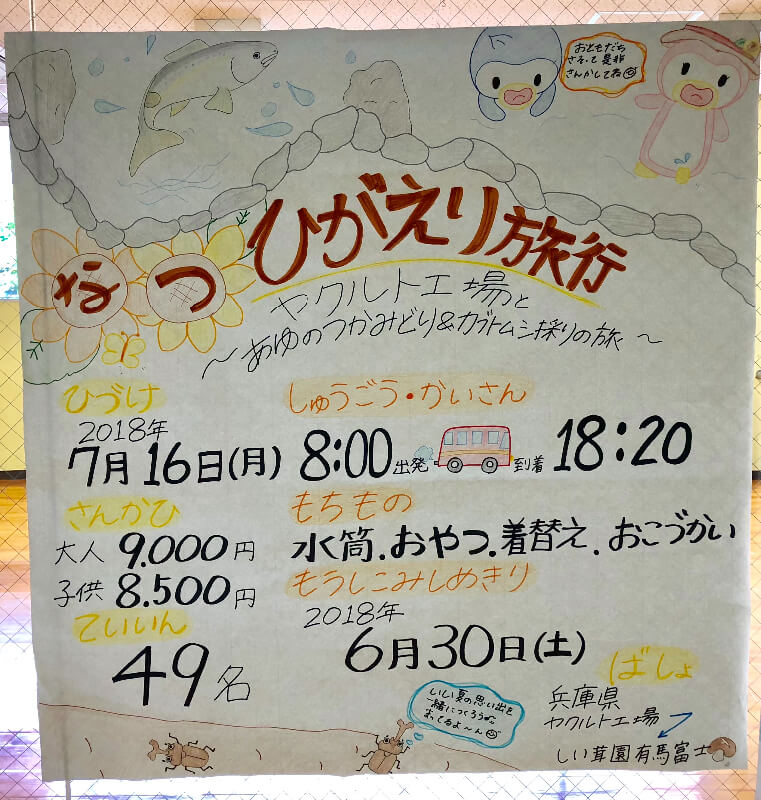 おともだち
さそって是非
さんかしてね
なつ ひがえり旅行
ヤクルト工場と
～あゆのつかみどり&カブトムシ採りの旅～
ひづけ
2018年
7月16日(月)
しゅうごう・かいさん
8:00出発 到着18:20
さんかひ
大人 9.000円
子供 8.500円
もちもの
水筒.おやつ.着替え.おこづかい
ていいん
49名
もうしこみしめきり
2018年
6月30日(土)
ばしょ
兵庫県
ヤクルト工場
しい茸園有馬富士
いい夏の思い出を
一緒につくろう
まってるよ～ん